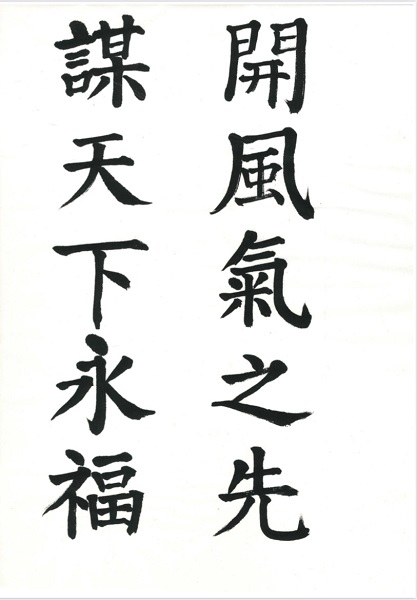 開風氣之先
謀天下永福